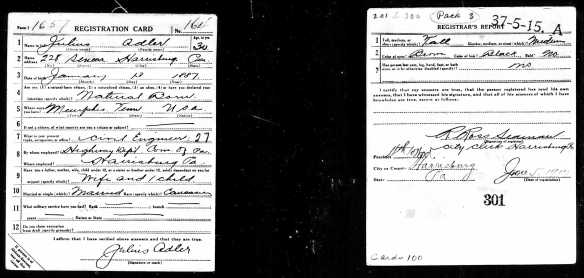 Form 1 165 REGISTRATION CARD No. 164
1 Name in full Julius Adler Age, in yrs. 30
2 Home address 228 Harrisburg Pa
3 Date of birth January 1887
4 Are you (1) a natural-born citizen, (2) a naturalized citizen, (3) an alien, (4) or have you declared your intention (specify which)? Natural Born
5 Where were you born? Memphis Tenn USA
6 If not a citizen, of what country are you a citizen or subject?
7 What is your present trade, occupation, or office? Civil Engineer 27
8 By whom employed? Highway Dept Com of Pa
Where employed? Harrisburg Pa
9 Have you a father, mother, wife, child under 12, or a sister or brother under 12, solely dependent on you for support (specify which)? Wife and 1 child
10 Married or single (which)? Married Race (specify which)? Caucasian
11 What military service have you had? Rank branch
years Nation or State
12 Do you claim exemption from draft (specify grounds)?
I affirm that I have verified above answers and that they are true.
Julius Adler
(Signature or mark)
REGISTRAR'S REPORT 37-5-15. A
1 Tall, medium, or short (specify which)? Tall Slender, medium, or stout (which)? Medium
2 Color of eyes? Color of hair? Black Bald? No
3 Has person lost arm, leg, hand, foot, or both eyes, or is he otherwise disabled (specify)? No
I certify that my answers are true, that the person registered has read his own answers, that I have witnessed his signature, and that all of his answers of which I have knowledge are true, except as follows:
(Signature of registrar)
City Clerk Harrisburg Pa
Precinct
City or County Harrisburg
State Pa
(Date of registration)
301
Card 100